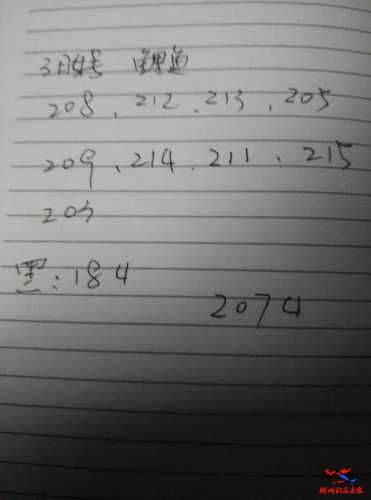 3月4号 鲤鱼
208、212、213、205
209、214、211、215
203
:184
2074